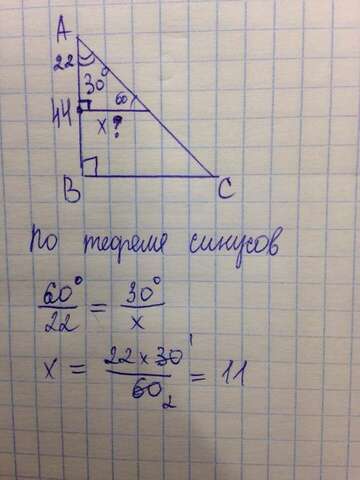 A
22
30°
60°
44
x ?
B
C
по теореме синусов
60° / 22 = 30° / x
x = 22 × 30 1 / 60 2 = 11